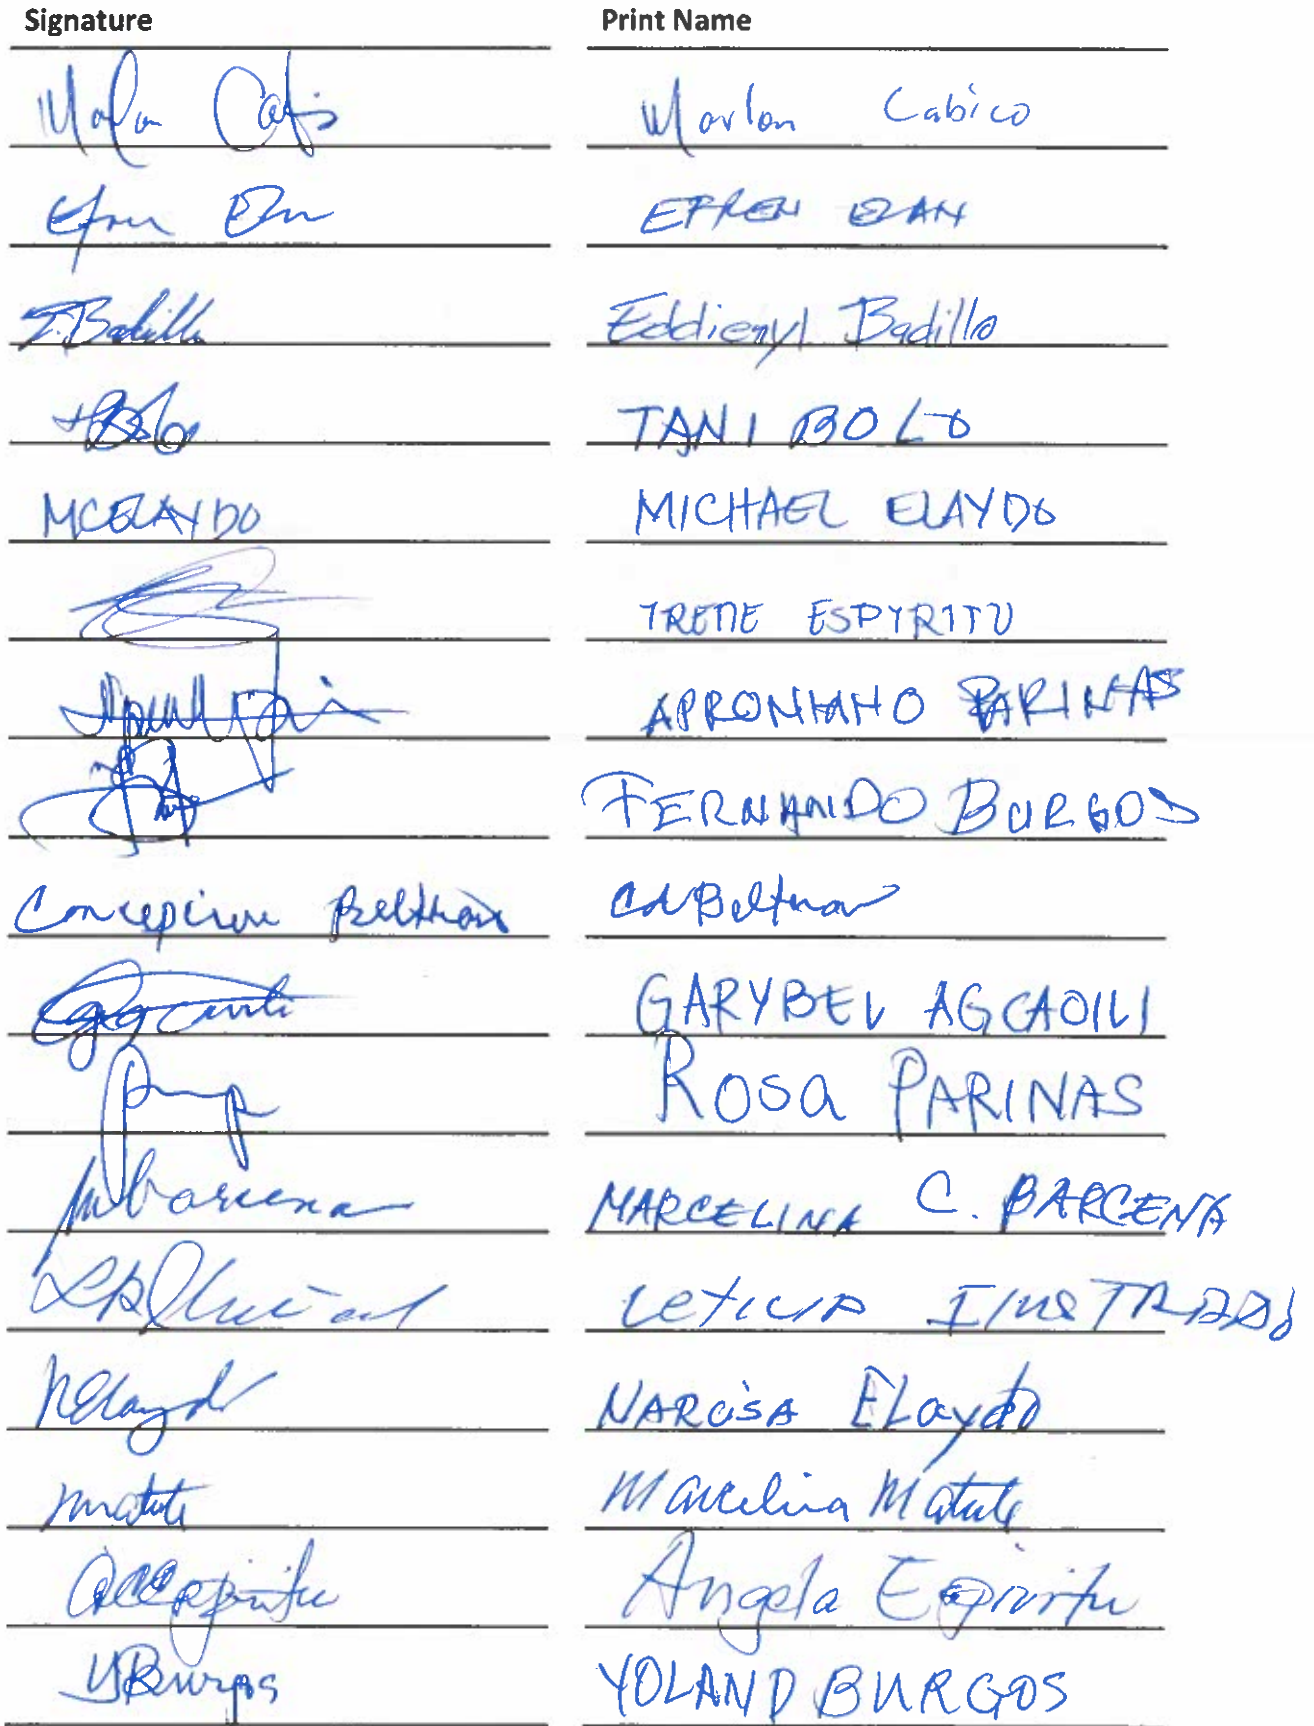 Signature Print Name
Marlon Cabico
EFREN ELAN
E. Badillo Eddienyl Badillo
TANI BOLO
MCELAYDO MICHAEL ELAYDO
IRENE ESPYRITU
APRONIANO PARINAS
FERNANDO BURGOS
Concepcion Beltran CdBeltran
GARYBEL AGCAOILI
ROSA PARINAS
mbarcena MARCELINA C. BARCENA
LETICIA ILUSTRADO
NElaydo NARCISA ELaydo
mmatute Marcelina Matute
ACEspiritu Angela Espiritu
YBurgos YOLAND BURGOS